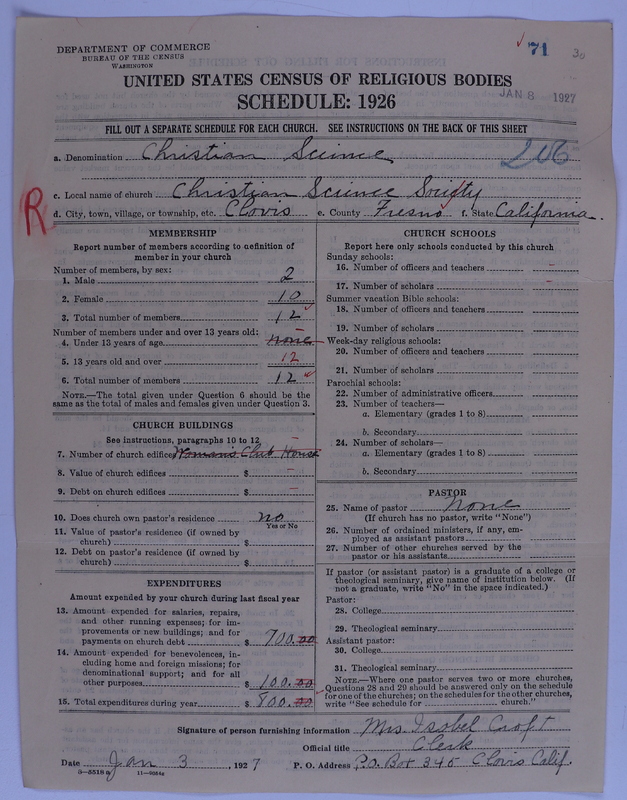 71 30
DEPARTMENT OF COMMERCE
BUREAU OF THE CENSUS
WASHINGTON
UNITED STATES CENSUS OF RELIGIOUS BODIES
SCHEDULE: 1926
JAN 8 1927
FILL OUT A SEPARATE SCHEDULE FOR EACH CHURCH. SEE INSTRUCTIONS ON THE BACK OF THIS SHEET
a. Denomination Christian Science
206
R
c. Local name of church Christian Science Society
d. City, town, village, or township, etc. Clovis e. County Fresno f. State California.
MEMBERSHIP
Report number of members according to definition of
member in your church
Number of members, by sex:
1. Male 2
2. Female 10
3. Total number of members 12
Number of members under and over 13 years old:
4. Under 13 years of age none
5. 13 years old and over 12
6. Total number of members 12
NOTE.—The total given under Question 6 should be
same as the total of males and females given under Question 3.
CHURCH BUILDINGS
See instructions, paragraphs 10 to 12
7. Number of church edifices Woman's Club House
8. Value of church edifices $ –
9. Debt on church edifices $ –
10. Does church own pastor's residence no
Yes or No
11. Value of pastor's residence (if owned by
church) $
12. Debt on pastor's residence (if owned by
church) $
EXPENDITURES
Amount expended by your church during last fiscal year
13. Amount expended for salaries, repairs,
and other running expenses; for im-
provements or new buildings; and for
payments on church debt $ 700.00
14. Amount expended for benevolences, in-
cluding home and foreign missions; for
denominational support; and for all
other purposes $ 100.00
15. Total expenditures during year $ 800.00
CHURCH SCHOOLS
Report here only schools conducted by this church
Sunday schools:
16. Number of officers and teachers –
17. Number of scholars –
Summer vacation Bible schools:
18. Number of officers and teachers
19. Number of scholars
Week-day religious schools:
20. Number of officers and teachers
21. Number of scholars
Parochial schools:
22. Number of administrative officers
23. Number of teachers—
a. Elementary (grades 1 to 8)
b. Secondary
24. Number of scholars—
a. Elementary (grades 1 to 8)
b. Secondary
PASTOR
25. Name of pastor None
(If church has no pastor, write "None")
26. Number of ordained ministers, if any, em-
ployed as assistant pastors
27. Number of other churches served by the
pastor or his assistants
If pastor (or assistant pastor) is a graduate of a college or
theological seminary, give name of institution below. (If
not a graduate, write "No" in the space indicated.)
Pastor:
28. College
29. Theological seminary
Assistant pastor:
30. College
31. Theological seminary
NOTE.—Where one pastor serves two or more churches,
Questions 28 and 29 should be answered only on the schedule
for one of the churches; on the schedules for the other churches,
write "See schedule for church."
Signature of person furnishing information Mrs Isobel Croft
Official title Clerk
Date Jan 3, 1927 P. O. Address P.O. Box 345 Clovis Calif.